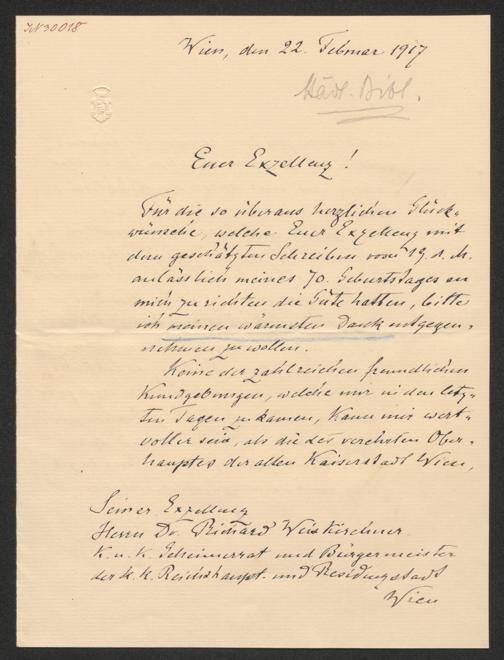 JN 30018
Wien, den 22. Februar 1917
Städt. Bibl.
Euer Exzellenz!
Für die so überaus herzlichen Glück-
wünsche, welche Euer Exzellenz mit
dem geschätzten Schreiben vom 19. d. M.
anlässlich meines 70. Geburtstages an
mich zu richten die Güte hatten, bitte
ich meinen wärmsten Dank entgegen-
nehmen zu wollen.
Keine der zahlreichen freundlichen
Kundgebungen, welche mir in den letz-
ten Tagen zukamen, kann mir wert-
voller sein, als die des verehrten Ober-
hauptes der alten Kaiserstadt Wien,
Seiner Exzellenz
Herrn Dr. Richard Weiskirchner
K. u. k. Geheimerrat und Bürgermeister
der k. k. Reichshaupt- und Residenzstadt
Wien